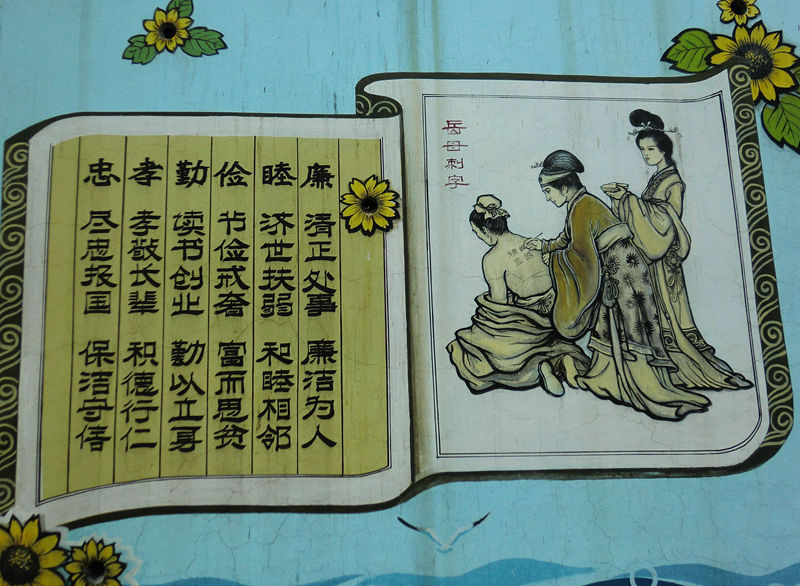 忠 尽忠报国 保洁守信
孝 孝敬长辈 积德行仁
勤 读书创业 勤以立身
俭 节俭戒奢 富而思贫
睦 济世扶弱 和睦相邻
廉 清正处事 廉洁为人
岳母刺字